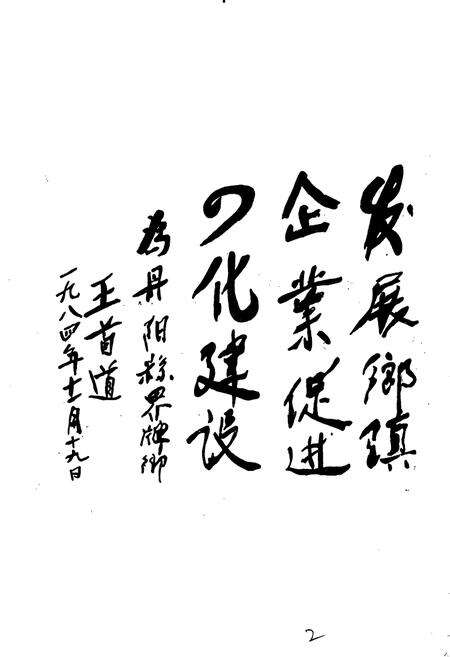 发展鄉鎮
企業促进
四化建设
为丹阳縣界牌鄉
王首道
一九八四年十一月十九日
2